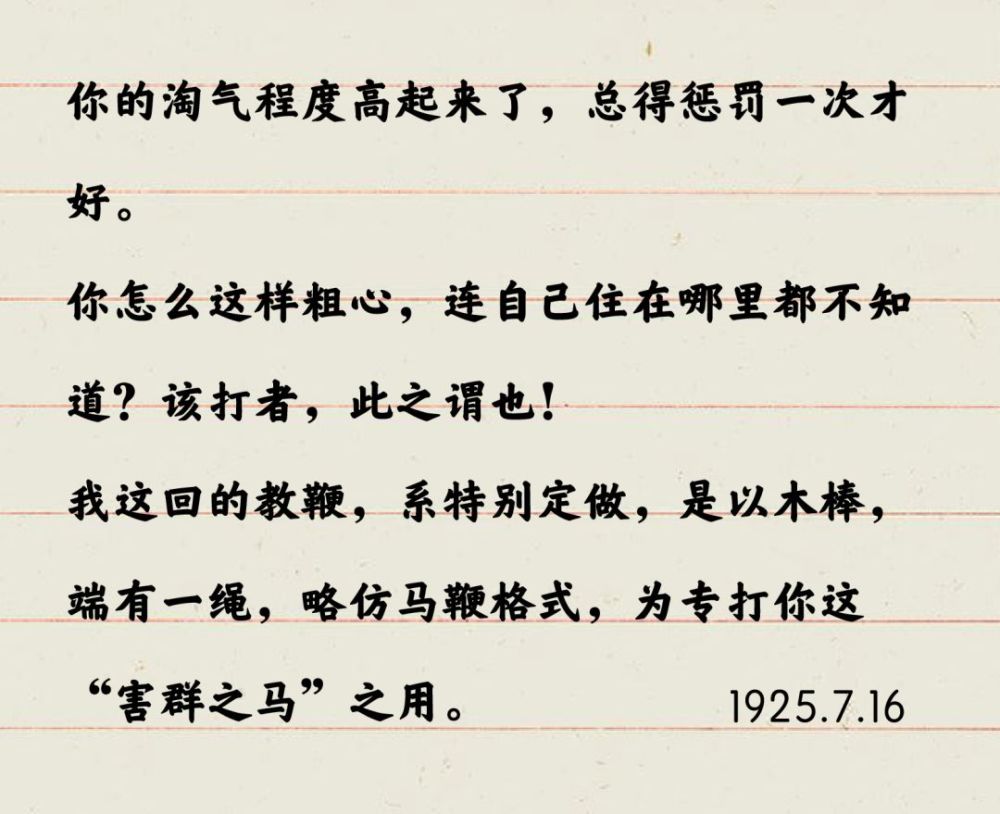 你的淘气程度高起来了，总得惩罚一次才
好。
你怎么这样粗心，连自己住在哪里都不知
道？该打者，此之谓也！
我这回的教鞭，系特别定做，是以木棒，
端有一绳，略仿马鞭格式，为专打你这
“害群之马”之用。 1925.7.16